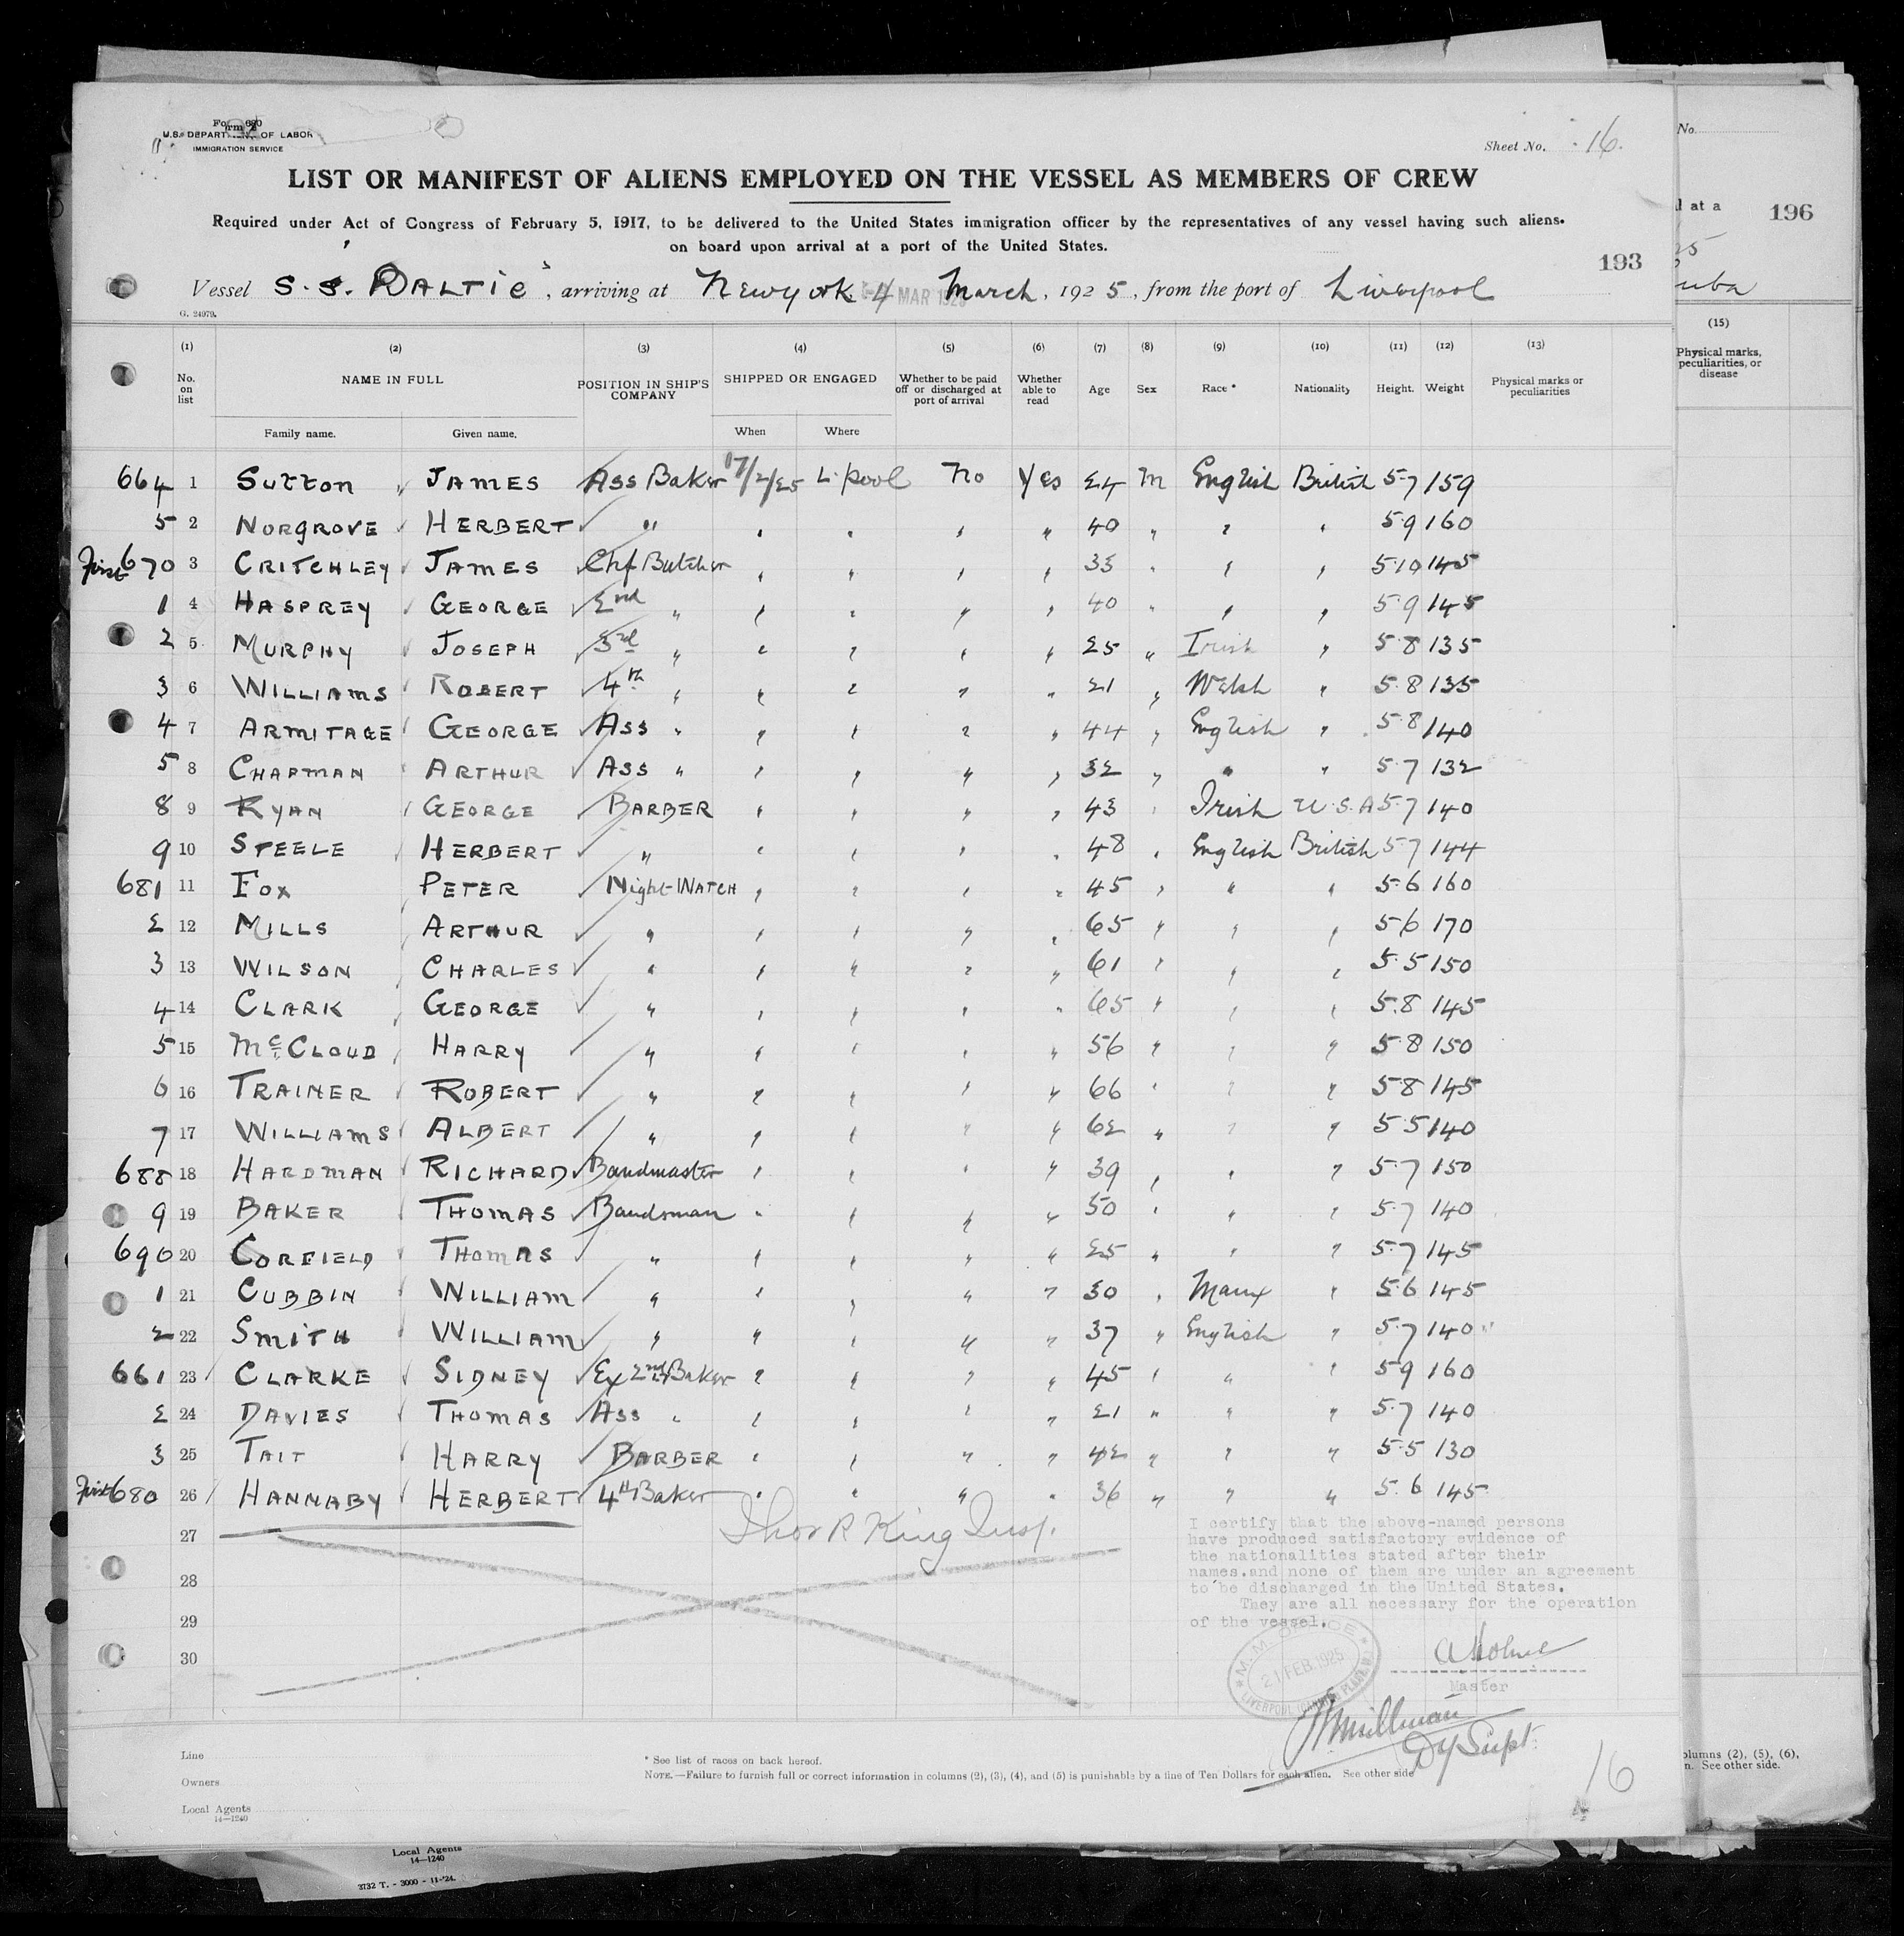 Form 680
U.S. DEPARTMENT OF LABOR
IMMIGRATION SERVICE
Sheet No. 16.
LIST OR MANIFEST OF ALIENS EMPLOYED ON THE VESSEL AS MEMBERS OF CREW
Required under Act of Congress of February 5, 1917, to be delivered to the United States immigration officer by the representatives of any vessel having such aliens
on board upon arrival at a port of the United States.
193
Vessel S.S. BALTIC, arriving at New york 4 MAR 1925 March, 1925, from the port of Liverpool
G. 24979.
(1) (2) (3) (4) (5) (6) (7) (8) (9) (10) (11) (12) (13)
No. on list NAME IN FULL POSITION IN SHIP'S COMPANY SHIPPED OR ENGAGED Whether to be paid off or discharged at port of arrival Whether able to read Age Sex Race * Nationality Height. Weight Physical marks or peculiarities
Family name. Given name. When Where
664 1 SUTTON JAMES Ass Baker 17/2/25 L.pool No Yes 24 M English British 5-7 159
5 2 NORGROVE HERBERT " " " " " 40 " " " 5.9 160
First 670 3 CRITCHLEY JAMES Chf Butcher " " " " 33 " " " 5.10 145
1 4 HASPREY GEORGE 2nd " " " " " 40 " " " 5.9 145
2 5 MURPHY JOSEPH 3rd " " " " " 25 " Irish " 5.8 135
3 6 WILLIAMS ROBERT 4th " " " " " 21 " Welsh " 5.8 135
4 7 ARMITAGE GEORGE Ass " " " " " 44 " English " 5.8 140
5 8 CHAPMAN ARTHUR Ass " " " " " 32 " " " 5.7 132
8 9 RYAN GEORGE BARBER " " " " 43 " Irish U.S.A 5.7 140
9 10 STEELE HERBERT " " " " " 48 " English British 5.7 144
681 11 FOX PETER Night-WATCH " " " " 45 " " " 5.6 160
2 12 MILLS ARTHUR " " " " " 65 " " " 5.6 170
3 13 WILSON CHARLES " " " " " 61 " " " 5.5 150
4 14 CLARK GEORGE " " " " " 65 " " " 5.8 145
5 15 McCLOUD HARRY " " " " " 56 " " " 5.8 150
6 16 TRAINER ROBERT " " " " " 66 " " " 5.8 145
7 17 WILLIAMS ALBERT " " " " " 62 " " " 5.5 140
688 18 HARDMAN RICHARD Bandmaster " " " " 39 " " " 5.7 150
9 19 BAKER THOMAS Bandsman " " " " 50 " " " 5.7 140
690 20 CORFIELD THOMAS " " " " " 25 " " " 5.7 145
1 21 CUBBIN WILLIAM " " " " " 30 " Manx " 5.6 145
2 22 SMITH WILLIAM " " " " " 37 " English " 5.7 140
661 23 CLARKE SIDNEY Ex 2nd Baker " " " " 45 " " " 5.9 160
2 24 DAVIES THOMAS Ass " " " " " 21 " " " 5.7 140
3 25 TAIT HARRY BARBER " " " " 42 " " " 5.5 130
First 680 26 HANNABY HERBERT 4th Baker " " " " 36 " " " 5.6 145
27
28
29
30
Thos R King Insp.
I certify that the above-named persons
have produced satisfactory evidence of
the nationalities stated after their
names.and none of them are under an agreement
to be discharged in the United States.
They are all necessary for the operation
of the vessel.
M.M. OFFICE
21 FEB. 1925
LIVERPOOL
Master
Dy Supt.
Line
Owners
Local Agents
14—1240
* See list of races on back hereof.
NOTE.—Failure to furnish full or correct information in columns (2), (3), (4), and (5) is punishable by a fine of Ten Dollars for each alien. See other side
16
No.
l at a
196
25
uba
(15)
Physical marks, peculiarities, or disease
olumns (2), (5), (6),
n. See other side.
Local Agents
14—1240
3732 T. - 3000 - 11-'24.